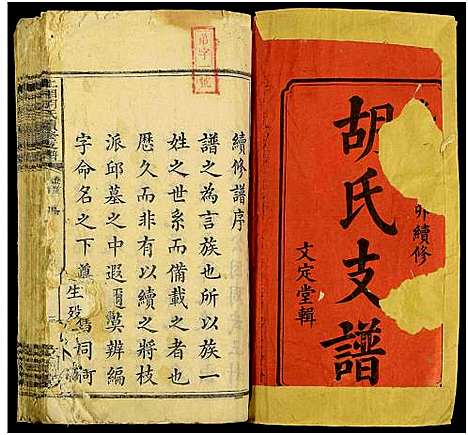 外續修
胡氏支譜
文定堂輯
續修譜序
譜之為言族也所以族一
姓之世系而備載之者也
歷久而非有以續之將枝
派邱墓之中遐爾莫辨編
字命名之下尊
生歿
同